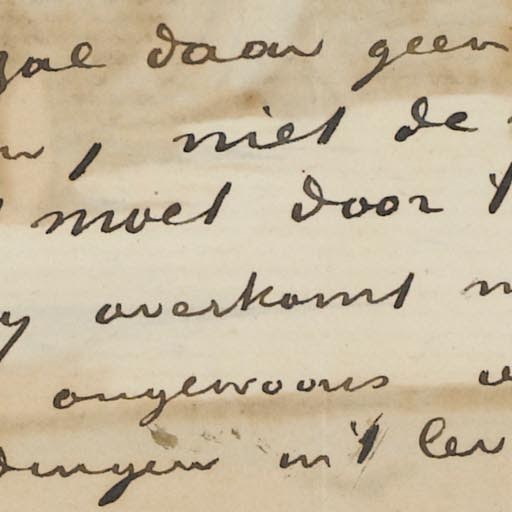 zal daar geen
, niet de
moet door
overkomt
ongewoons
dingen in 't lev